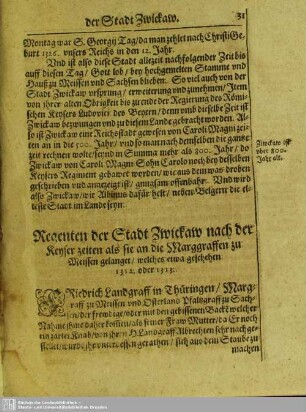 der Stadt Zwickaw. 31
Montag war S. Georgij Tag/ da man zehlet nach Christi Ge-
burt 1326. unsers Reichs in den 12. Jahr.
Und ist also diese Stadt allezeit nachfolgender Zeit bis
auff diesen Tag/ Gott lob/ bey hochgemelten Stamme und
Hauß zu Meissen und Sachsen blieben. So viel auch von der
Stadt Zwickaw ursprung/ erweiterung und zunehmen/ Item
von ihrer alten Obrigkeit bis zu ende der Regierung des Römi-
schen Keysers Ludovici des Beyern/ denn umb dieselbe Zeit ist
Zwickaw bezwungen und zu diesem Lande gebracht worden. Al-
so ist Zwickaw eine Reichsstadt gewesen von Caroli Magni zei-
ten an in die 500. Jahr/ und so man nach demselben die gantze
zeit rechnen wolte/ seind in Summa mehr als 800. Jahr/ do
Zwickaw von Caroli Magni Sohn Carolo noch bey desselben
Keysers Regiment gebawet worden/ wie aus dem was droben
geschrieben und angezeigt ist/ gnugsam offenbahr. Und wird
also Zwickaw/ wie Albinus dafür helt/ neben Belgern die el-
teste Stadt im Lande seyn.
Zwickaw ist
uber 800.
Jahr alt.
Regenten der Stadt Zwickaw nach der
Keyser zeiten als sie an die Marggraffen zu
Meissen gelanget/ welches etwa geschehen
1312. oder 1313.
FRiedrich Landgraff in Thüringen/ Marg-
graff zu Meissen und Osterland Pfaltzgraff zu Sach-
sen/ der frewdige/ oder mit dem gebissenen Back/ welcher
Nahme ihme daher kommen/ als seiner Fraw Mutter/ da Er noch
ein zartes Knab/ von ihrem H. Landgraff Albrechten sehr nach ge-
machen